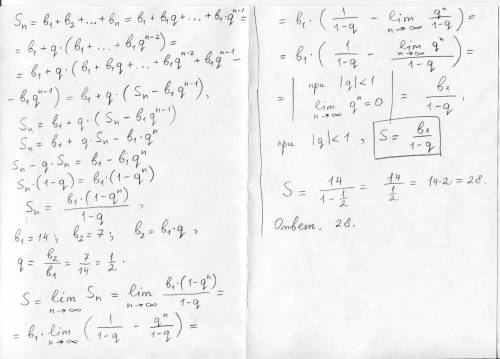 Sn = b1 + b2 + ... + bn = b1 + b1q + ... + b1·q^(n-1) =
= b1 + q·(b1 + ... + b1q^(n-2)) =
= b1 + q·(b1 + b1q + ... + b1q^(n-2) + b1q^(n-1) -
- b1q^(n-1)) = b1 + q·(Sn - b1q^(n-1)),
Sn = b1 + q·(Sn - b1q^(n-1))
Sn = b1 + q·Sn - b1·q^n
Sn - q·Sn = b1 - b1q^n
Sn·(1-q) = b1·(1-q^n)
Sn = b1·(1-q^n)/(1-q),
b1 = 14; b2 = 7; b2 = b1·q,
q = b2/b1 = 7/14 = 1/2.
S = lim n→∞ Sn = lim n→∞ b1·(1-q^n)/(1-q) =
= b1·lim n→∞ (1/(1-q) - q^n/(1-q)) =
= b1·(1/(1-q) - lim n→∞ q^n/(1-q)) =
= b1·(1/(1-q) - lim n→∞ q^n/(1-q)) =
= | при |q|<1 lim n→∞ q^n = 0 | = b1/(1-q),
при |q|<1, S = b1/(1-q)
S = 14/(1 - 1/2) = 14/(1/2) = 14·2 = 28.
Ответ. 28.